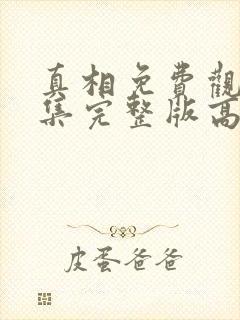 真相免費觀
集完整版高
皮蛋爸爸